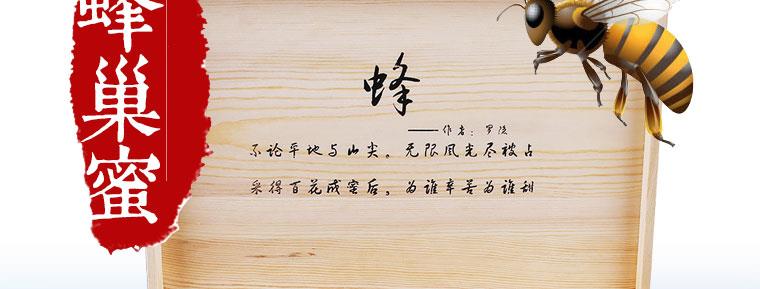 蜂巢蜜
蜂
——作者：罗隐
不论平地与山尖。无限风光尽被占
采得百花成蜜后。为谁辛苦为谁甜